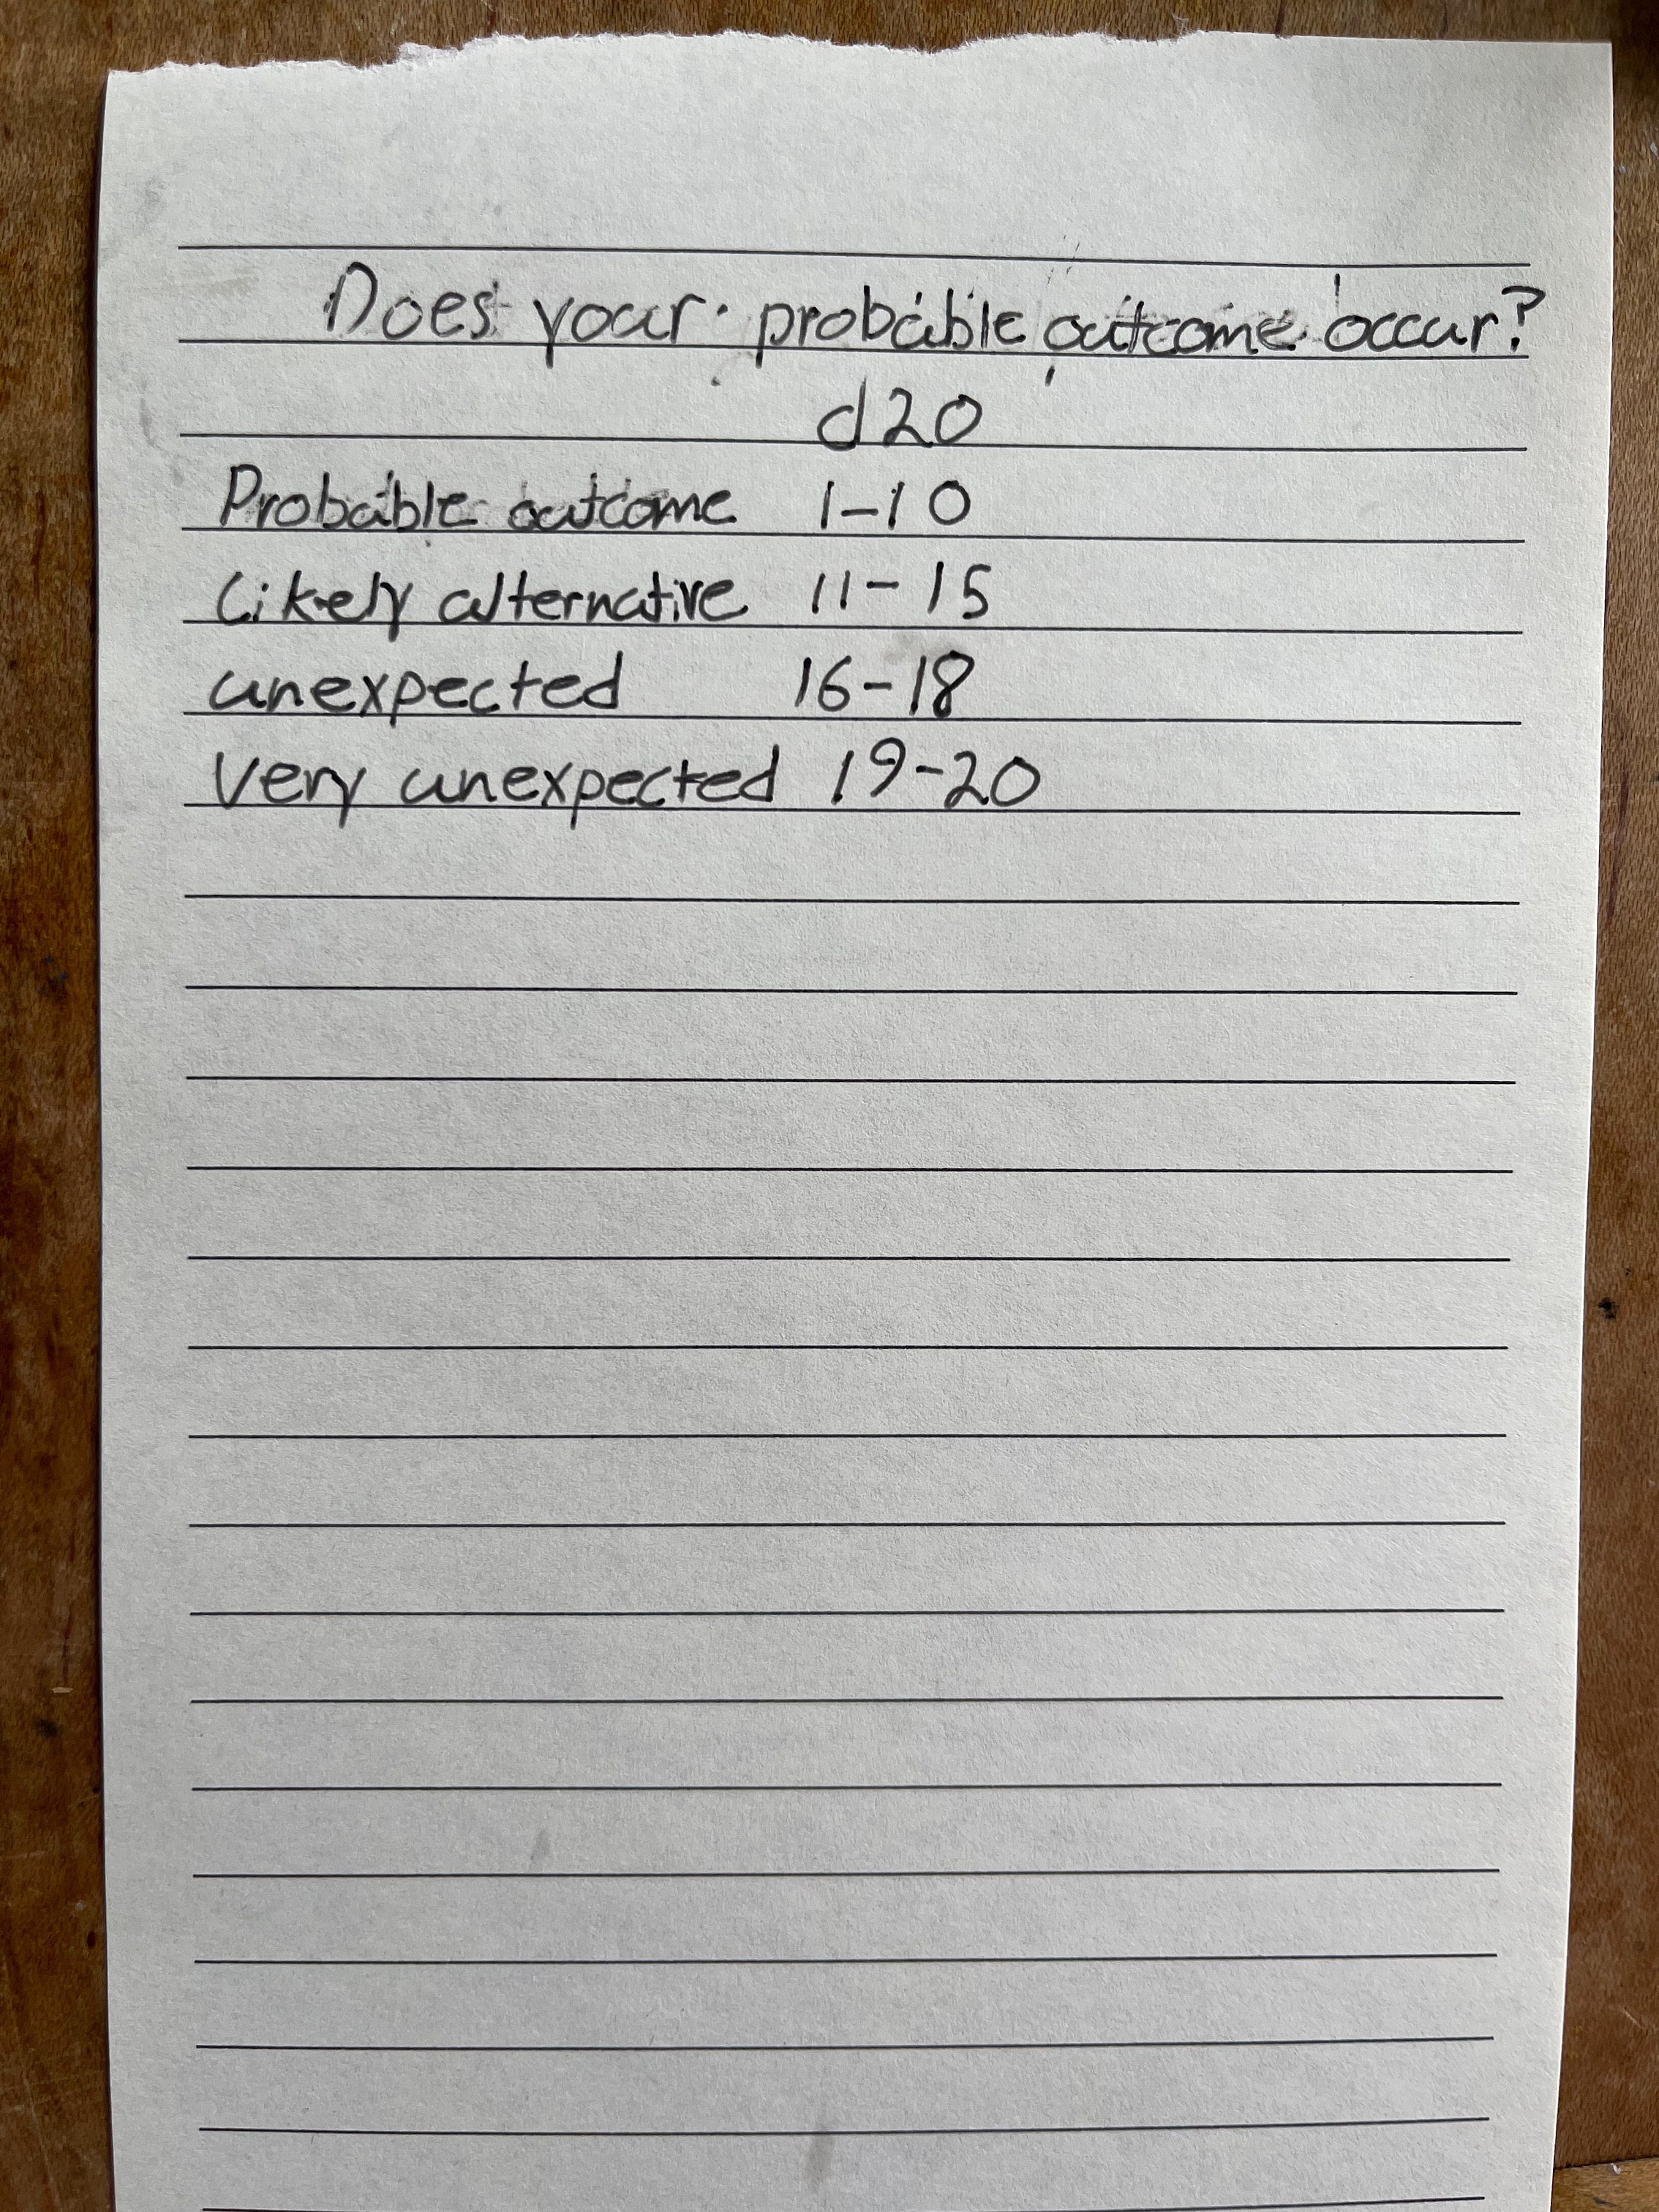 Does your probable outcome occur?
d20
Probable outcome 1-10
Likely alternative 11-15
unexpected 16-18
Very unexpected 19-20